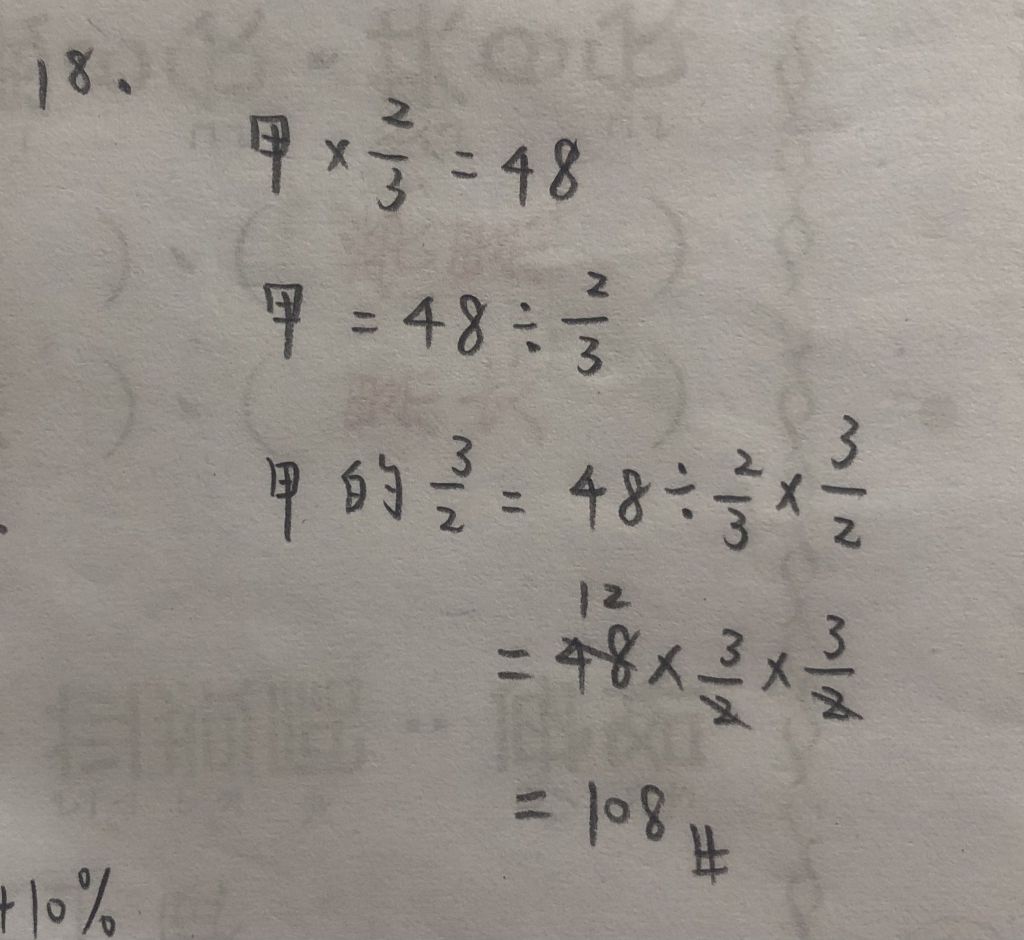 18.
甲 × 2/3 = 48
甲 = 48 ÷ 2/3
甲的 3/2 = 48 ÷ 2/3 × 3/2
12
= 48 × 3/2 × 3/2
= 108 #
+10%